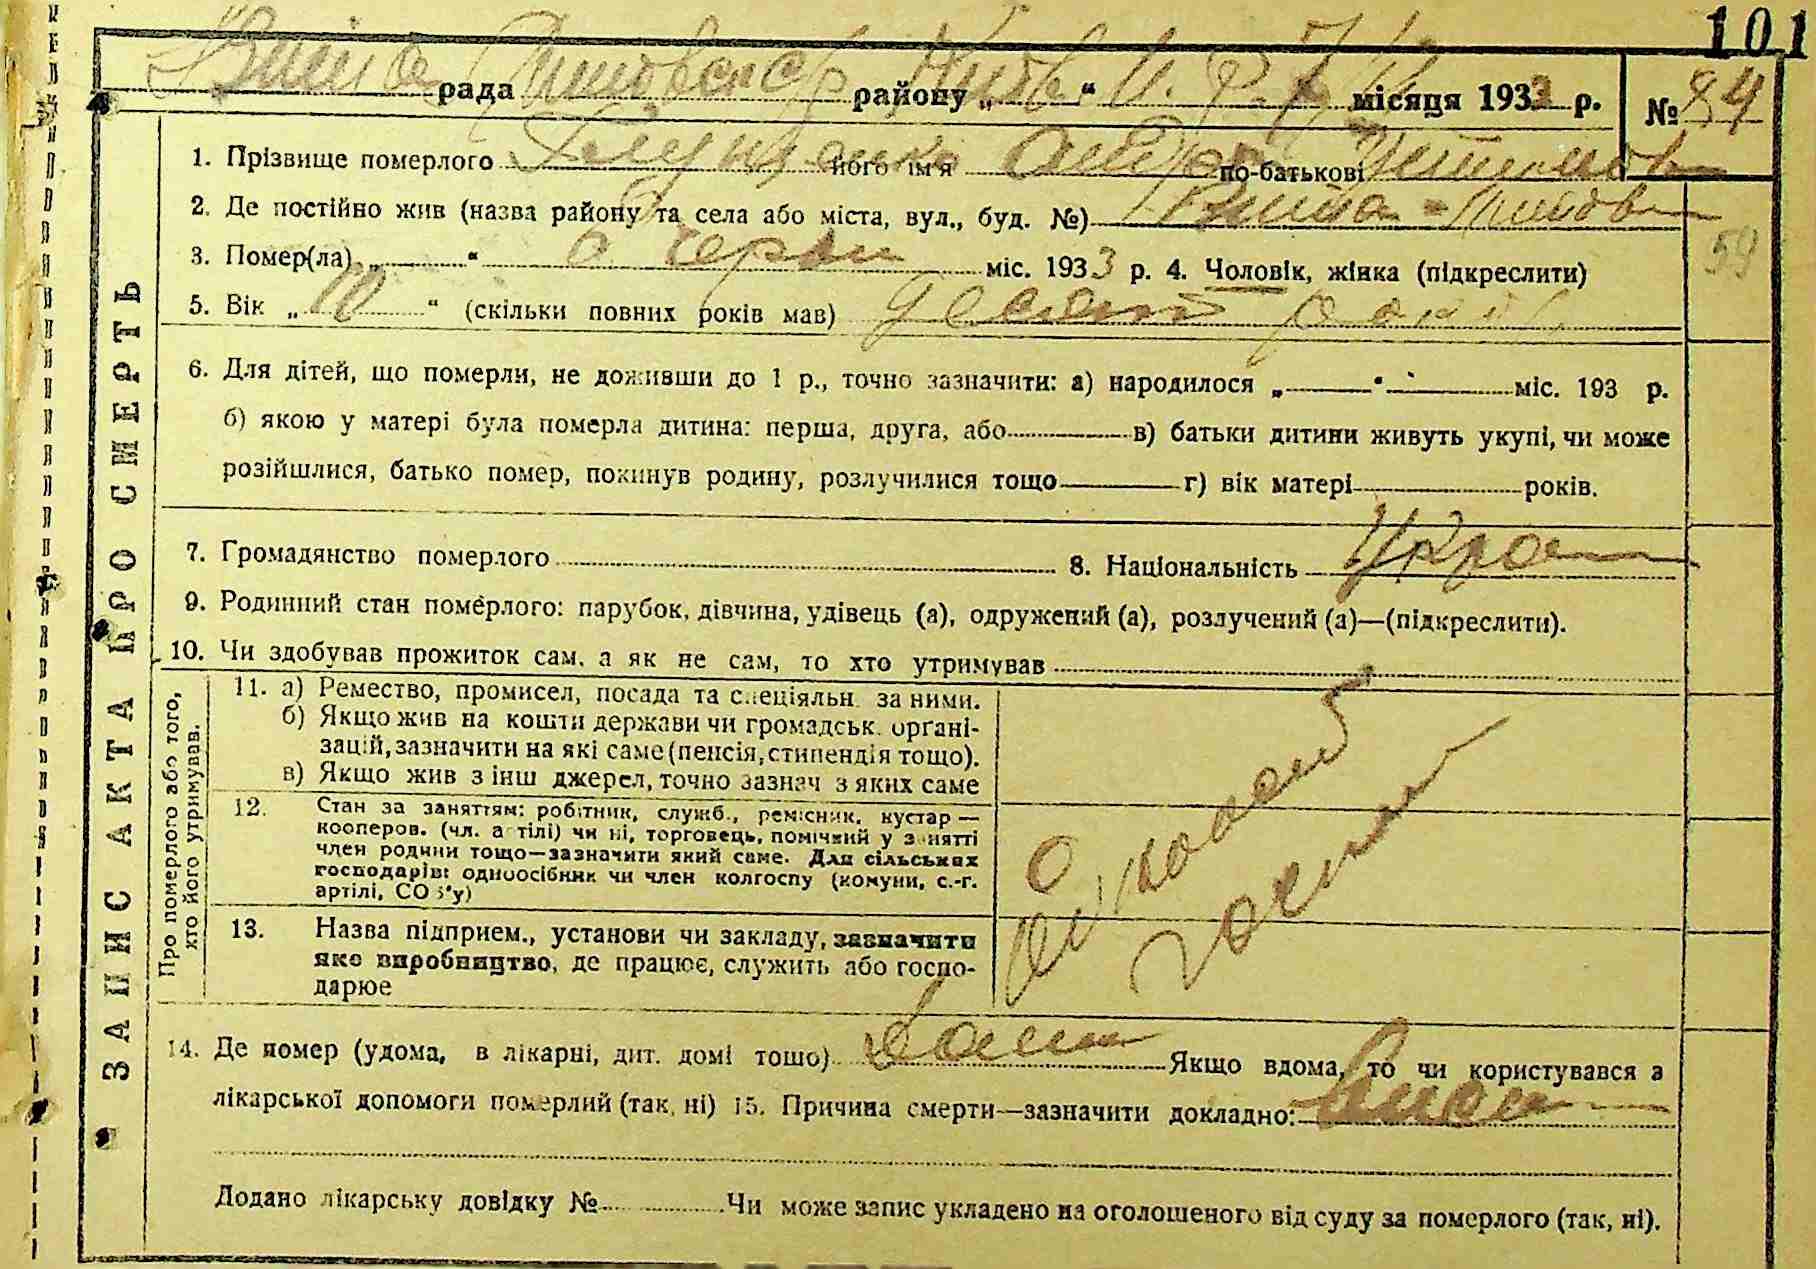 101
рада району „ “ місяця 1933 р. № 84
1. Прізвище померлого його ім'я по-батькові
2. Де постійно жив (назва району та села або міста, вул., буд. №)
3. Помер(ла) „ “ 6 черв міс. 1933 р. 4. Чоловік, жінка (підкреслити)
59
5. Вік „ 10 “ (скільки повних років мав) десять років
6. Для дітей, що померли, не доживши до 1 р., точно зазначити: а) народилося „ “ міс. 193 р.
б) якою у матері була померла дитина: перша, друга, або в) батьки дитини живуть укупі, чи може
розійшлися, батько помер, покинув родину, розлучилися тощо г) вік матері років.
7. Громадянство померлого 8. Національність Украин
9. Родинний стан померлого: парубок, дівчина, удівець (а), одружений (а), розлучений (а)—(підкреслити).
10. Чи здобував прожиток сам, а як не сам, то хто утримував
11. а) Ремество, промисел, посада та спеціяльн. за ними.
б) Якщо жив на кошти держави чи громадськ. органі-
зацій, зазначити на які саме (пенсія, стипендія тощо).
в) Якщо жив з інш джерел, точно зазнач з яких саме
12. Стан за заняттям: робітник, служб., ремісник, кустар —
кооперов. (чл. артілі) чи ні, торговець, помічний у занятті
член родини тощо—зазначити який саме. Для сільських
господарів: одноосібник чи член колгоспу (комуни, с.-г.
артілі, СОЗ'у)
13. Назва підприєм., установи чи закладу, зазначити
яке виробництво, де працює, служить або госпо-
дарює
Про померлого або того,
хто його утримував.
ЗАПИС АКТА ПРО СМЕРТЬ
14. Де помер (удома, в лікарні, дит. домі тощо) Дома Якщо вдома, то чи користувався з
лікарської допомоги померлий (так, ні) 15. Причина смерти—зазначити докладно:
Додано лікарську довідку № Чи може запис укладено на оголошеного від суду за померлого (так, ні).